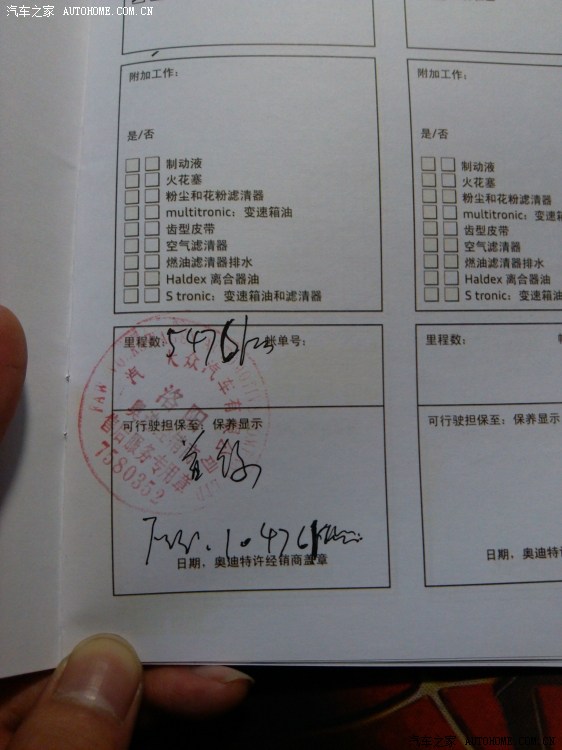 汽车之家 AUTOHOME.COM.CN
附加工作:
是/否
制动液
火花塞
粉尘和花粉滤清器
multitronic: 变速箱油
齿型皮带
空气滤清器
燃油滤清器排水
Haldex 离合器油
S tronic: 变速箱油和滤清器
里程数:
帐单号:
可行驶担保至: 保养显示
首保
日期, 奥迪特许经销商盖章
洛阳
售后服务专用章
7580352
附加工作:
是/否
制动液
火花塞
粉尘和花粉滤清器
multitronic: 变速箱
齿型皮带
空气滤清器
燃油滤清器排水
Haldex 离合器油
S tronic: 变速箱油
里程数:
可行驶担保至: 保养显示
日期, 奥迪特
汽车之家 AUTOHOME.COM.CN